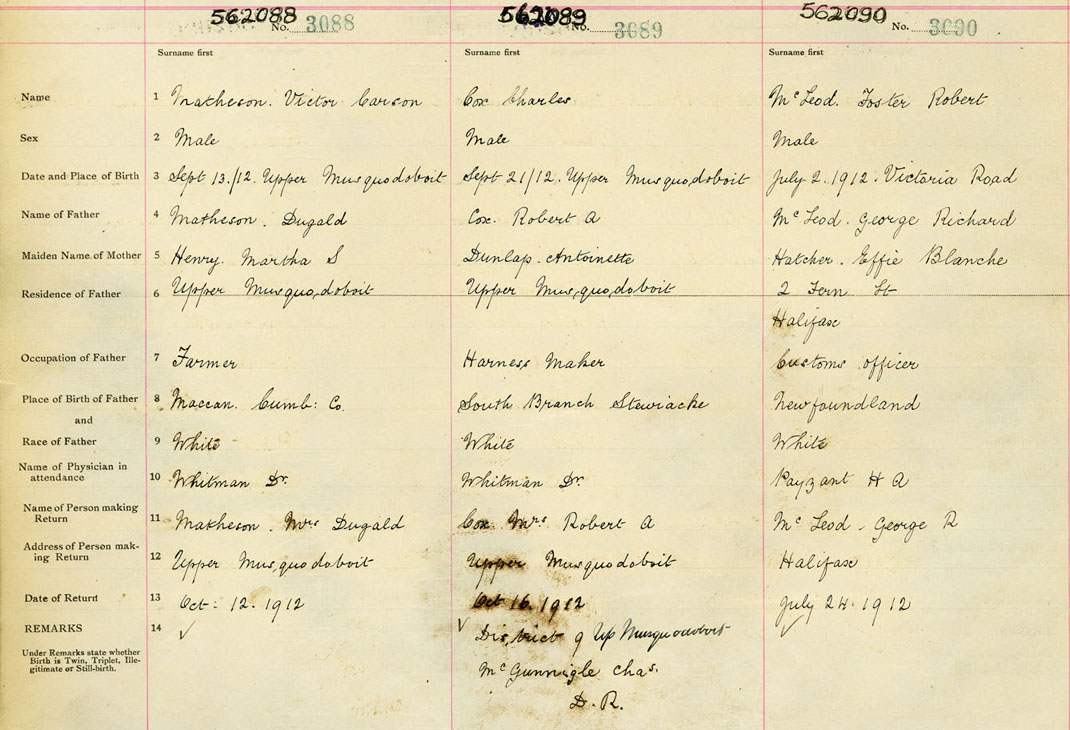 562088 562089 562090
No. 3088 No. 3089 No. 3090
Surname first Surname first Surname first
Name 1 Matheson. Victor Carson Cox Charles McLeod. Foster Robert
Sex 2 Male Male Male
Date and Place of Birth 3 Sept 13/12. Upper Musquodoboit Sept 21/12. Upper Musquodoboit July 2. 1912. Victoria Road
Name of Father 4 Matheson. Dugald Cox. Robert A McLeod. George Richard
Maiden Name of Mother 5 Henry. Martha S Dunlap. Antoinette Hatcher. Effie Blanche
Residence of Father 6 Upper Musquodoboit Upper Musquodoboit 2 Fern St
Halifax
Occupation of Father 7 Farmer Harness Maker Customs officer
Place of Birth of Father 8 Maccan. Cumb: Co. South Branch Stewiacke Newfoundland
and
Race of Father 9 White White White
Name of Physician in
attendance 10 Whitman Dr. Whitman Dr. Payzant H A
Name of Person making
Return 11 Matheson. Mrs Dugald Cox Mrs Robert A McLeod. George R
Address of Person mak-
ing Return 12 Upper Musquodoboit Upper Musquodoboit Halifax
Date of Return 13 Oct: 12. 1912 Oct 16. 1912 July 24. 1912
REMARKS 14 ✓ ✓ District of Up Musquodoboit ✓
Under Remarks state whether
Birth is Twin, Triplet, Ille-
gitimate or Still-birth.
McGunnigle Chas.
D. R.